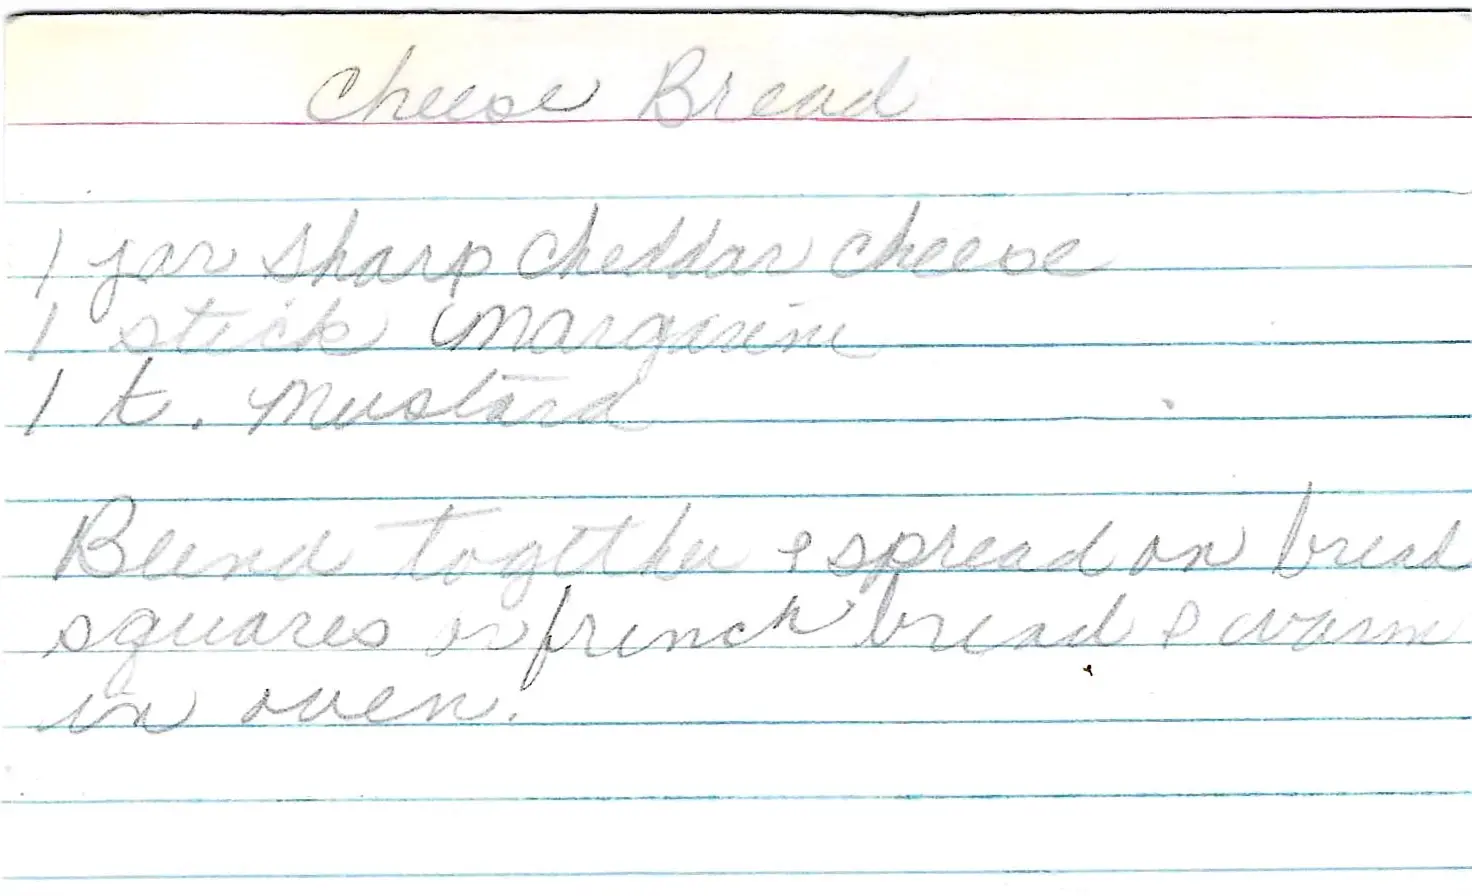 Cheese Bread
1 jar Sharp Cheddar Cheese
1 stick Margarine
1 t. Mustard
Blend together & spread on bread
squares or french bread & warm
in oven.